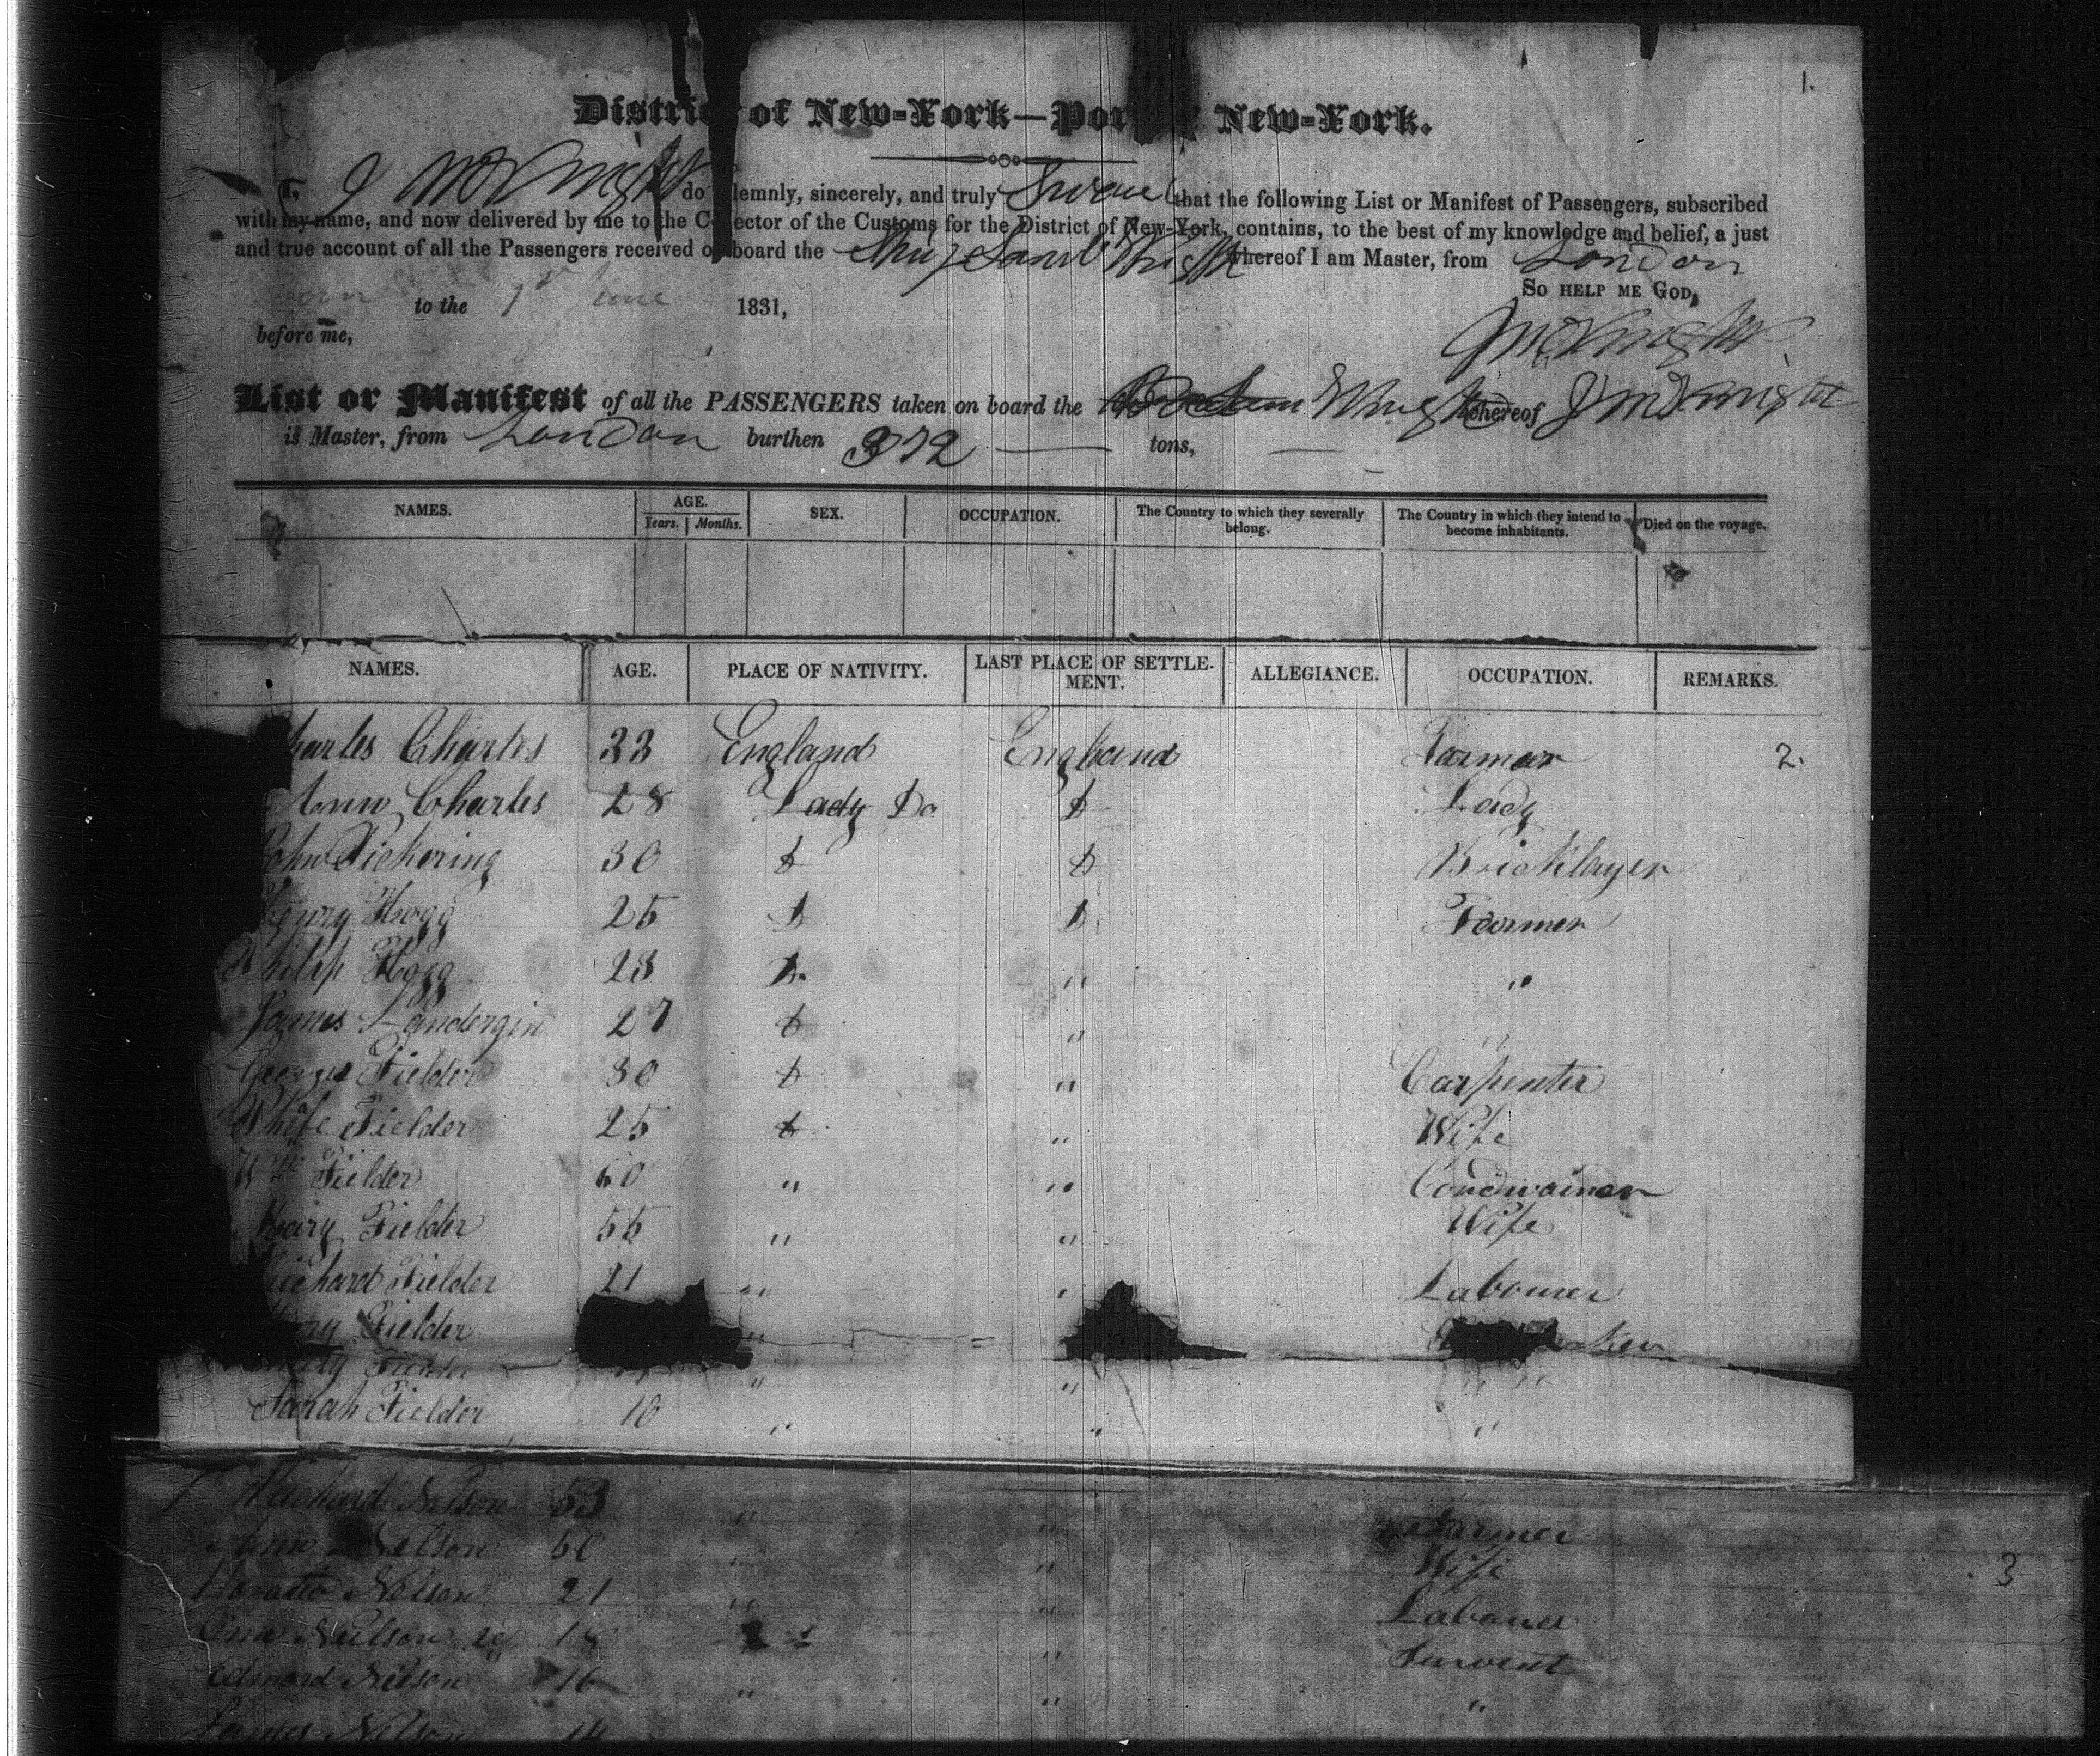 1.
Distric of New-York—Por New-York.
I, J McKnight do lemnly, sincerely, and truly Swear that the following List or Manifest of Passengers, subscribed
with my name, and now delivered by me to the C ector of the Customs for the District of New-York, contains, to the best of my knowledge and belief, a just
and true account of all the Passengers received o board the Ship Saml Wright whereof I am Master, from London
So help me God,
to the 1st June 1831,
before me,
J McKnight
List or Manifest of all the PASSENGERS taken on board the Wright whereof J McKnight
is Master, from London burthen 372 — tons,
NAMES. AGE. Years. Months. SEX. OCCUPATION. The Country to which they severally belong. The Country in which they intend to become inhabitants. Died on the voyage.
NAMES. AGE. PLACE OF NATIVITY. LAST PLACE OF SETTLE-MENT. ALLEGIANCE. OCCUPATION. REMARKS.
harles Charles 33 England England Farmer 2.
Ann Charles 28 Lady Do Do Lady
John Pickering 30 Do Do Bricklayer
Henry Hogg 25 Do Do Farmer
Philip Hogg 28 Do " "
James Landergin 27 Do " "
George Fielder 30 Do " Carpenter
Fielder 25 Do " Wife
Wm Fielder 60 " " Cordwainer
Mary Fielder 55 " " Wife
Richard Fielder 21 " " Labourer
Fielder "
Fielder " " "
Sarah Fielder 10 " " "
Richard Nelson 53 " " Farmer
Ann Nelson 60 " " Wife 3
Horatio Nelson 21 " " Labourer
Ann Neilson 2d 18 " Servent
Edmond Nelson 16 " " "
James Nelson 14